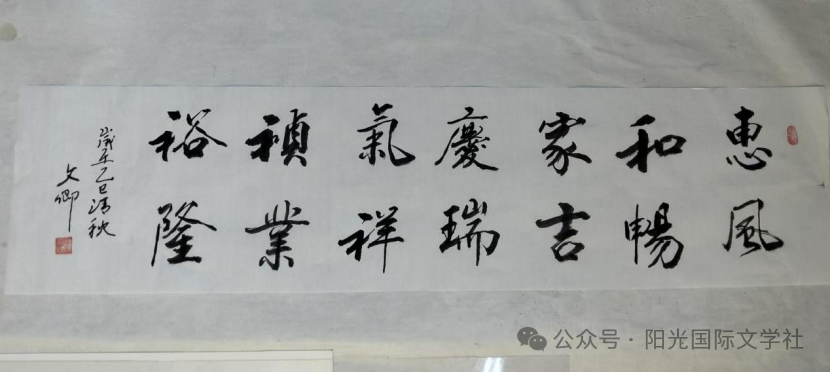 惠風
和暢
家吉
慶瑞
氣祥
禎業
裕隆
歲在乙巳清秋
文卿
公众号·阳光国际文学社